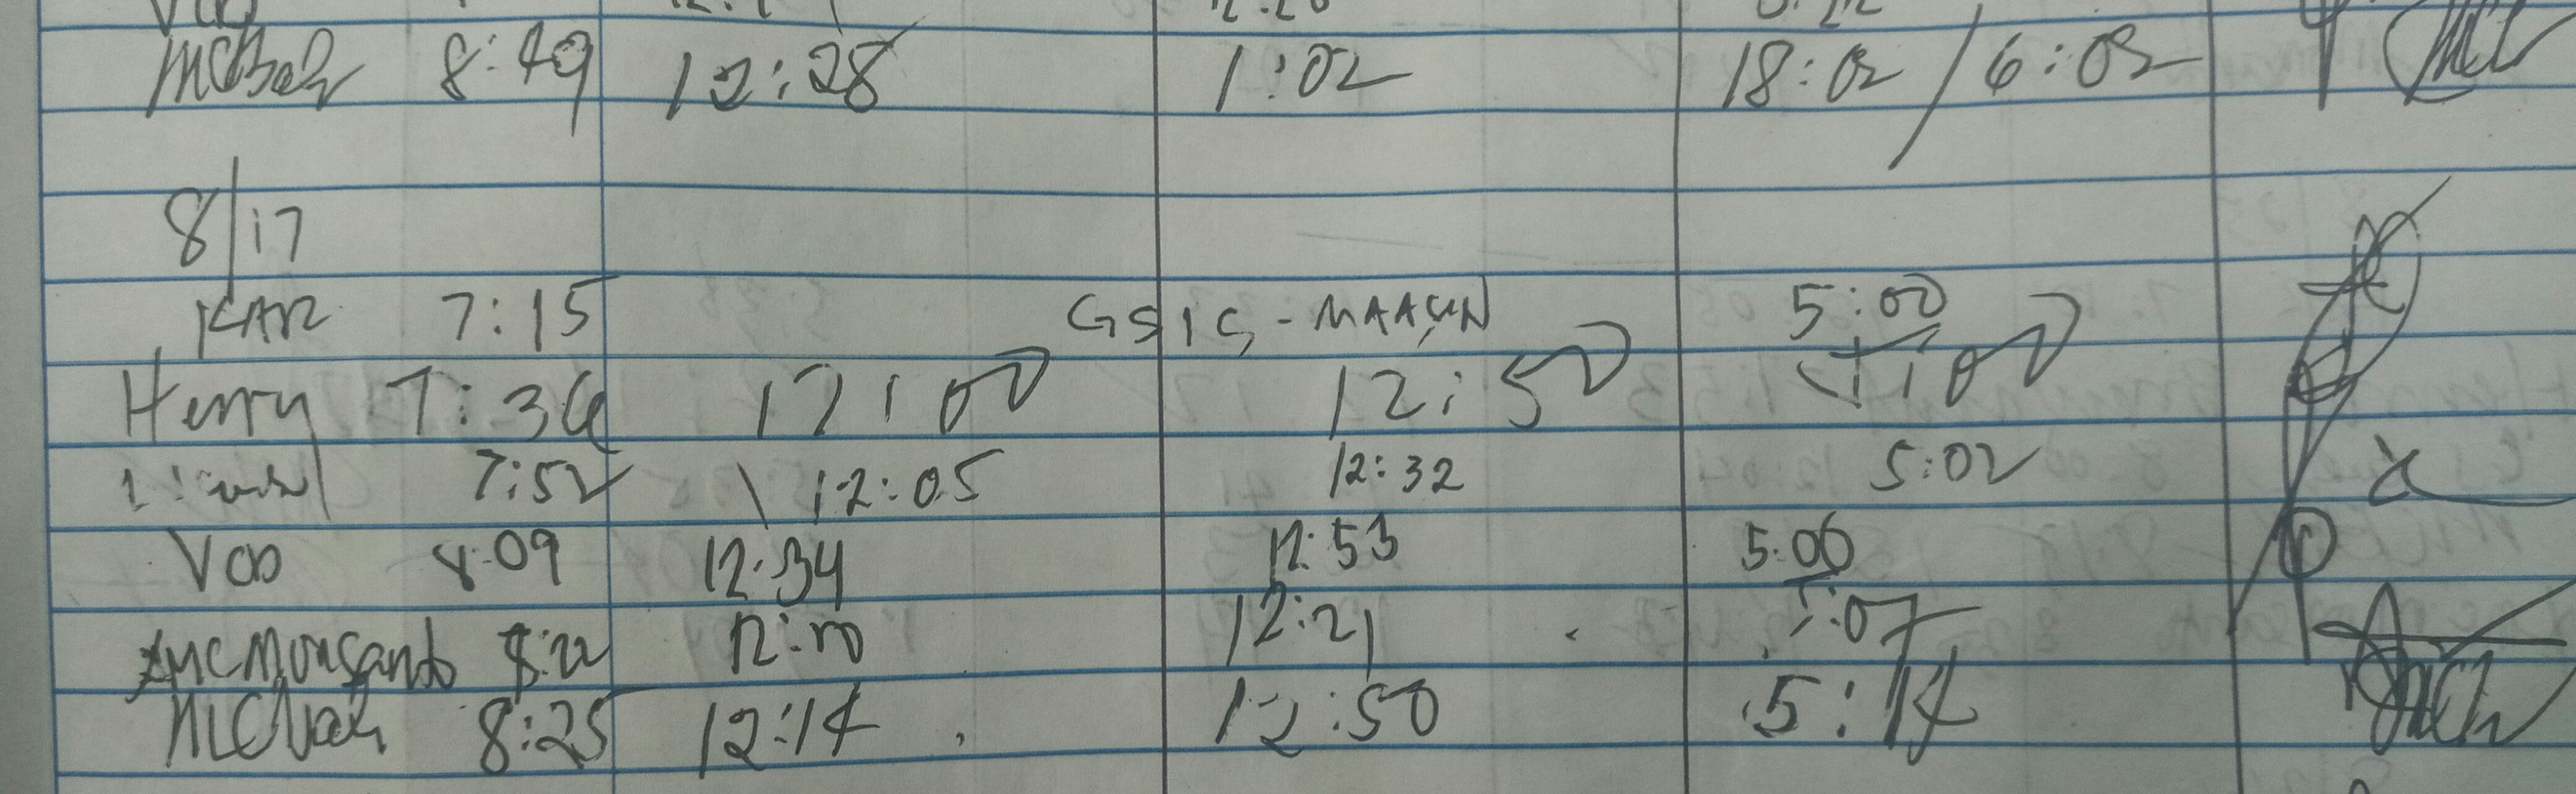 8:49 12:28 1:02 18:02 / 6:02
8/17
KAR 7:15 GSIS - MAASIN 5:00
Herry 7:36 12:00 12:50 5:00
7:52 12:05 12:32 5:02
VOD 8:09 12:34 12:53 5:06
8:22 12:10 12:21 5:07
8:25 12:14 12:50 5:14